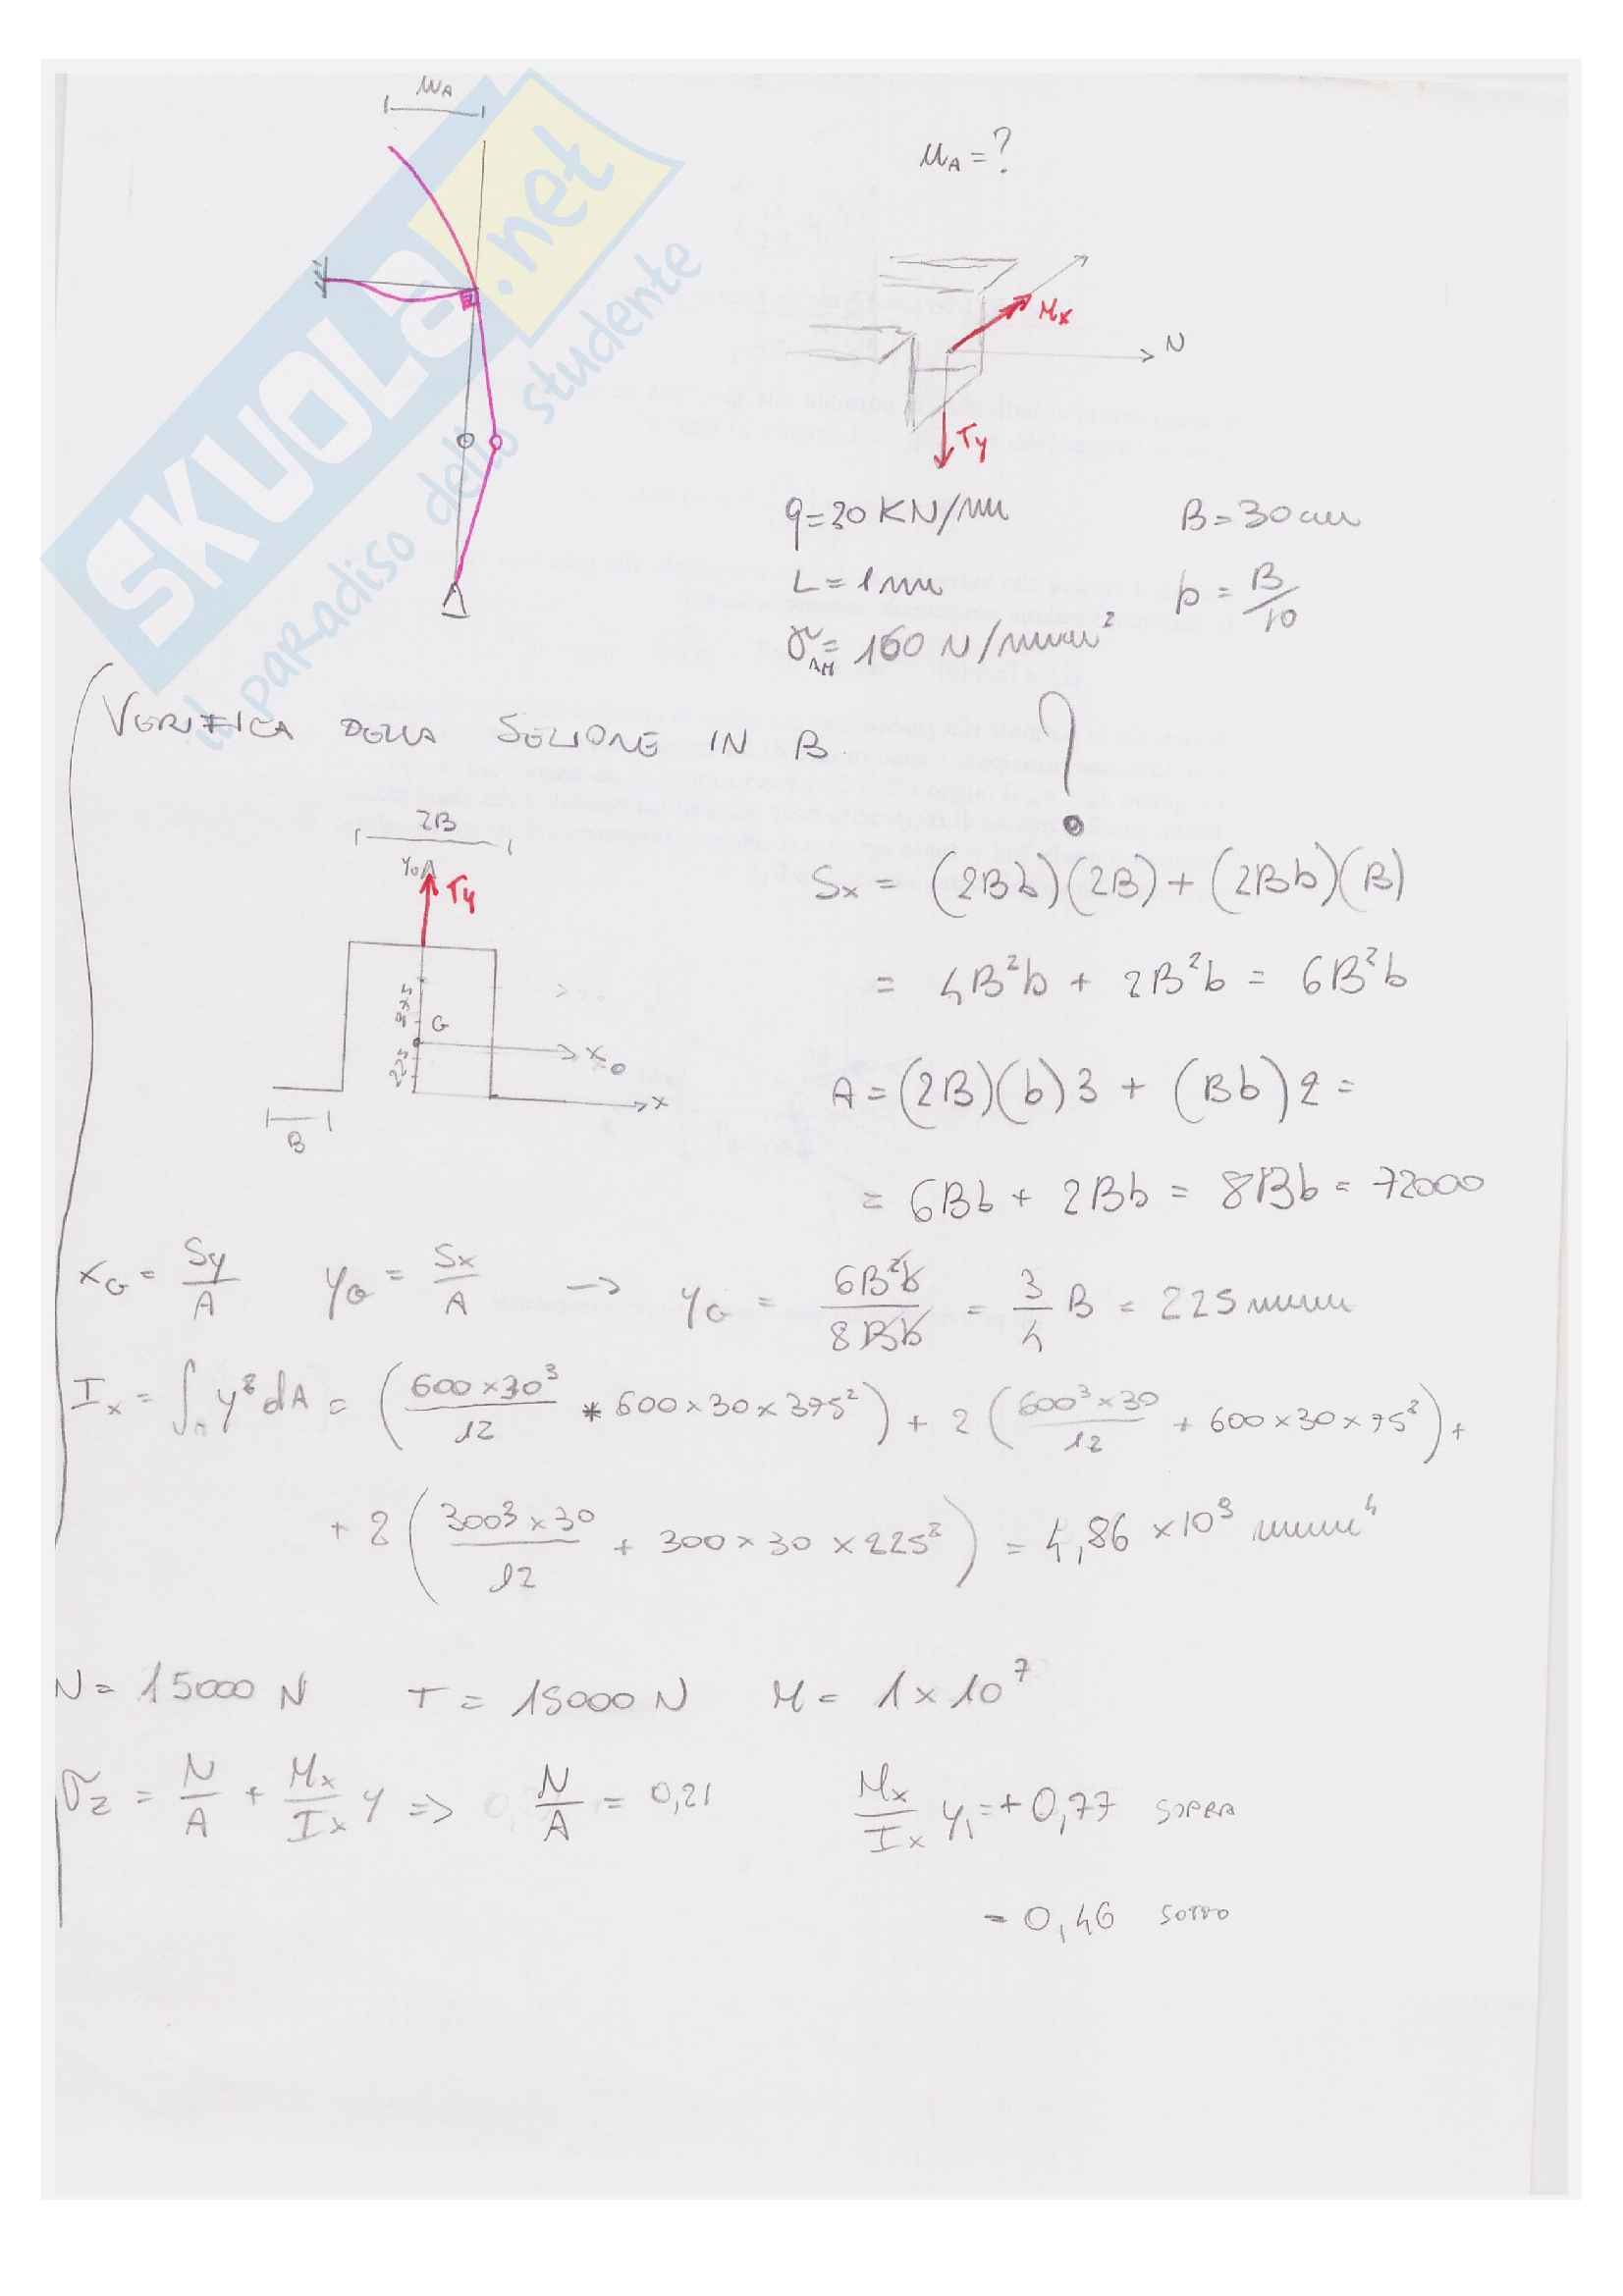 u_A
u_A = ?
SKUOLA.net
il paradiso dello studente
M_x
N
T_y
q = 30 KN/m
B = 30 cm
L = 1 m
b = B/10
σ_AM = 160 N/mm²
VERIFICA DELLA SEZIONE IN B ?
2B
y_0
T_y
S_x = (2Bb)(2B) + (2Bb)(B)
= 4B²b + 2B²b = 6B²b
375
G
x_0
225
x
B
A = (2B)(b)3 + (Bb)2 =
= 6Bb + 2Bb = 8Bb = 72000
x_G = S_y/A y_G = S_x/A → y_G = 6B²b/8Bb = 3/4 B = 225 mm
I_x = ∫ y² dA = (600×30³/12 * 600×30×375²) + 2 (600³×30/12 + 600×30×75²) +
+ 2 (300³×30/12 + 300×30×225²) = 4,86 ×10⁹ mm⁴
N = 15000 N T = 15000 N M = 1×10⁷
σ_z = N/A + M_x/I_x y => N/A = 0,21 M_x/I_x y_1 = + 0,77 SOPRA
- 0,46 SOTTO